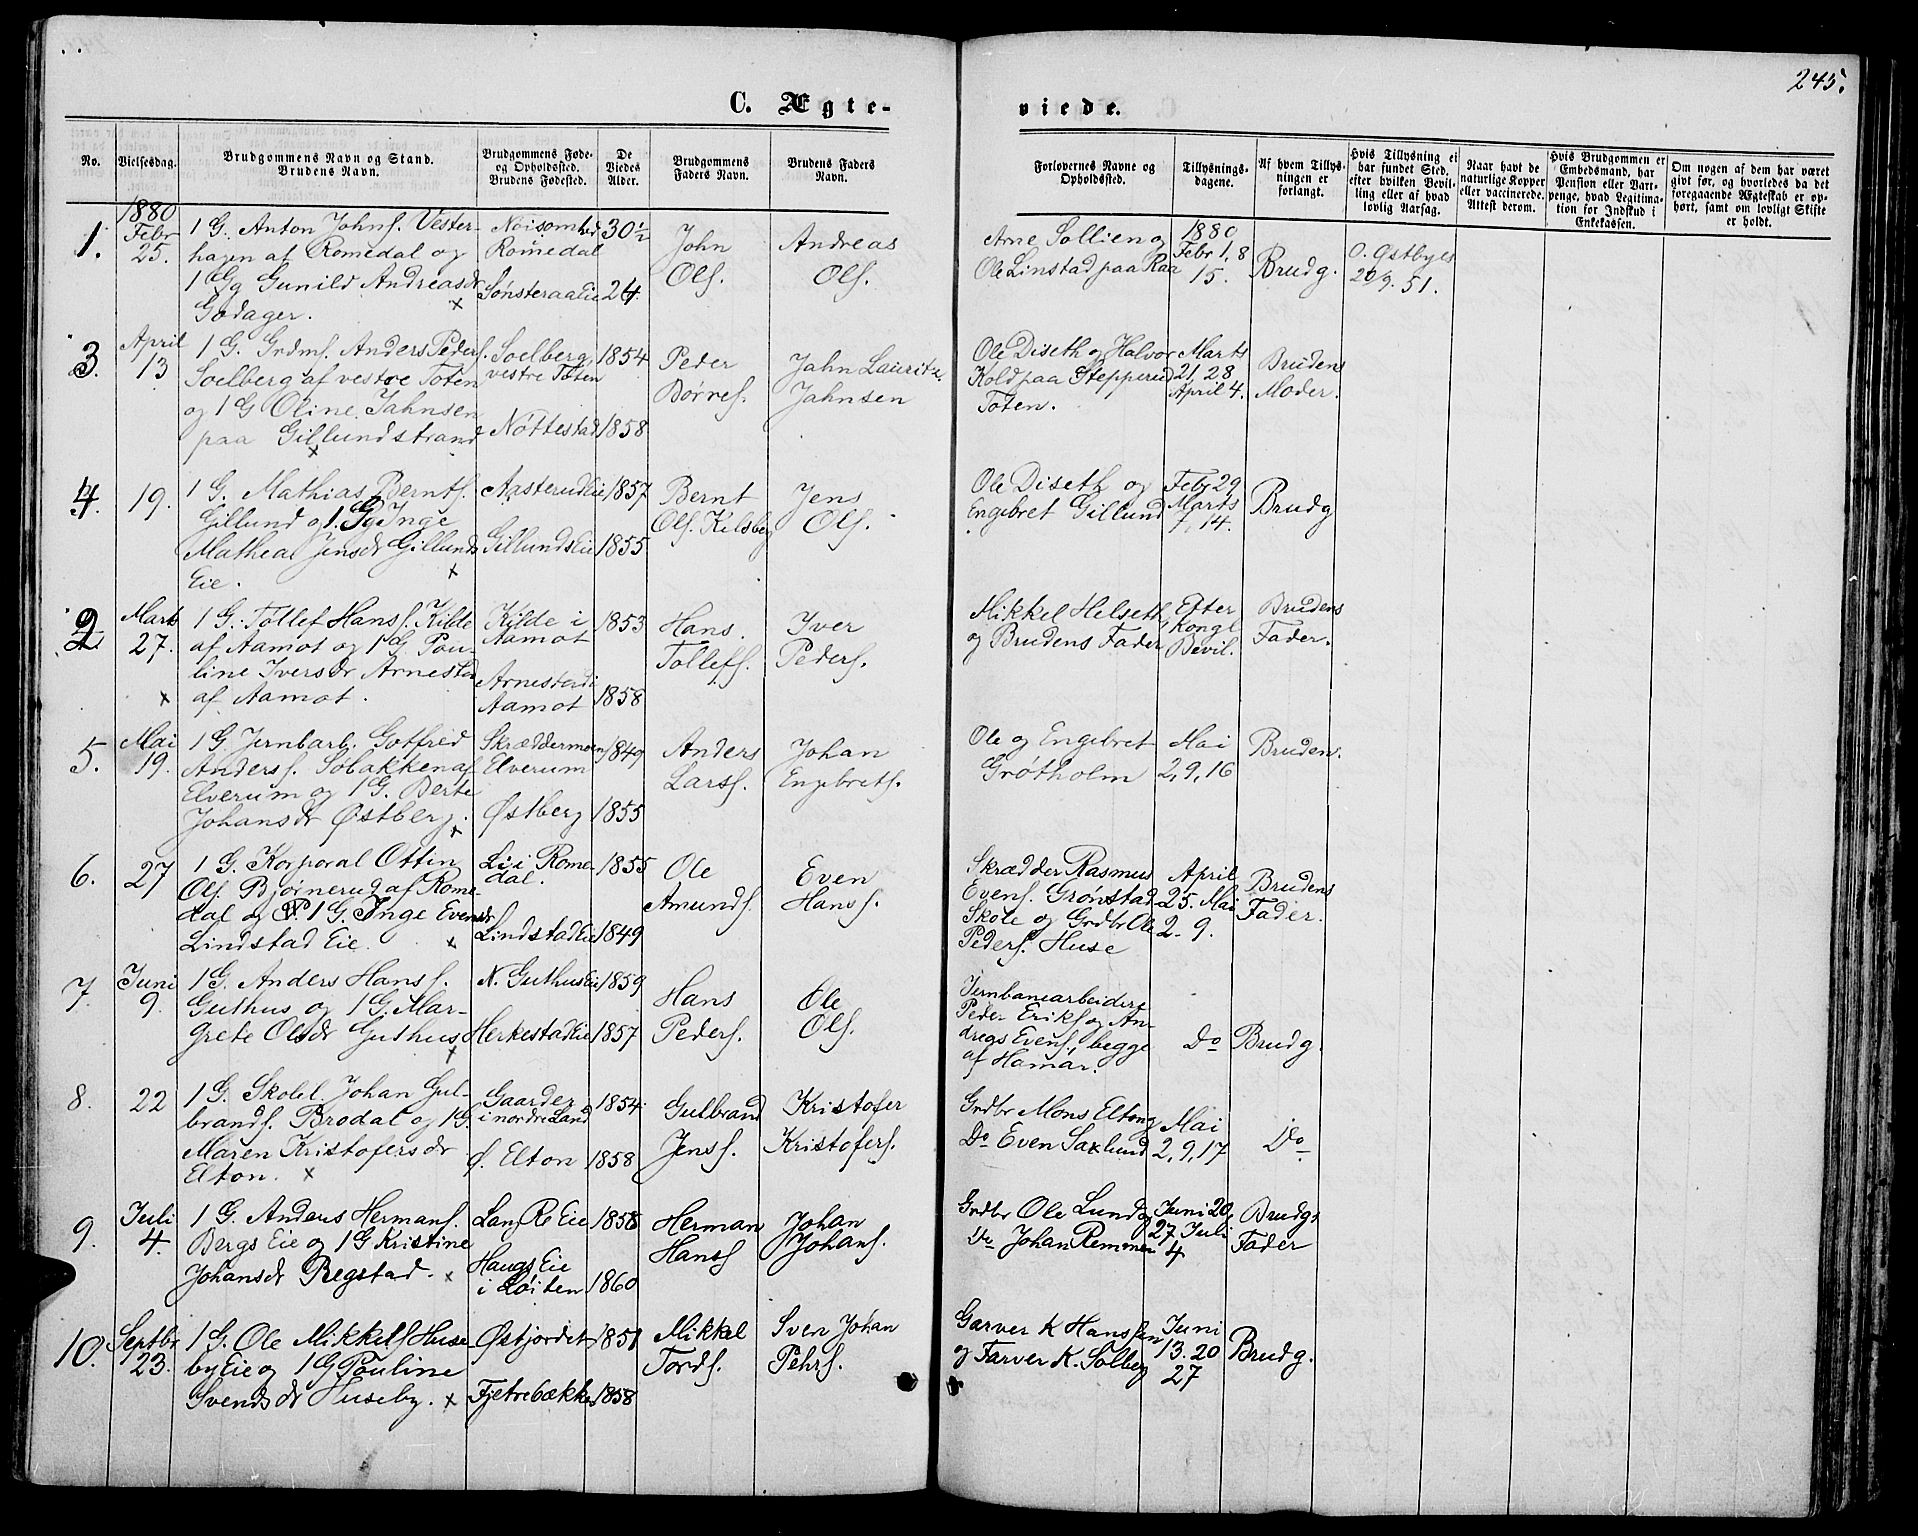 245.
C. Ægte-
viede.
No.
Vielsesdag.
Brudgommens Navn og Stand.
Brudens Navn.
Brudgommens Føde-
og Opholdssted.
Brudens Fødested.
De
Viedes
Alder.
Brudgommens
Faders Navn.
Brudens Faders
Navn.
Forlovernes Navne og
Opholdssted.
Tillysnings-
dagene.
Af hvem Tillys-
ningen er
forlangt.
Hvis Tillysning ei
har fundet Sted,
efter hvilken Bevil-
ling eller af hvad
lovlig Aarsag.
Naar havt de
naturlige Kopper
eller vaccinerede.
Attest derom.
Hvis Brudgommen er
Embedsmand, har
Pension eller Vart-
penge, hvad Legitima-
tion for Indskud i
Enkekassen.
Om nogen af dem har været
givt før, og hvorledes da det
foregaaende Ægteskab er op-
hørt, samt om lovligt Skifte
er holdt.
1.
1880
Febr
25.
1 G. Anton Johns. Vester-
hagen af Romedal og
1 Gg Gunild Andreasdr
Godager. x
Noisomhed
Romedal
Sønsteraa Eie
30½
24.
John
Ols.
Andreas
Ols.
Arne Sollien og
Ole Linstad paa Raa
1880
Febr 1, 8
15.
Brudg.
O. Østbyes
20/9. 51.
3.
April
13
1 G. Grdms. Anders Peders.
Soelberg af vestre Toten
og 1 G Oline Jahnsen
paa Gillundstrand
x
Soelberg
vestre Toten
Nøttestad
1854
1858
Peder
Børres.
Jahn Lauritz.
Jahnsen
Ole Diseth og Halvor
Kold paa Stepperud
Toten.
Marts
21, 28
April 4.
Brudens
Moder.
4.
19.
1 G. Mathias Bernts.
Gillund og 1. Gg Inge
Mathea Jensdr Gillunds
Eie. x
Aasterud Eie
Gillunds Eie
1857
1855
Bernt
Ols. Kilsberg
Jens
Ols.
Ole Diseth og
Engebret Gillund
Feb 29
Marts
7, 14.
Brudg
2
Marts
27.
x
1 G. Tollef Hans. Kilde
af Aamot og 1 G. Pau-
line Iversdr Arnestad
af Aamot.
Kilde i
Aamot
Arnestad i
Aamot
1853
1858
Hans
Tollefs.
Iver
Peders.
Mikkel Helseth,
og Brudens Fader
Efter
Kongl
Bevil.
Brudens
Fader.
5.
Mai
19.
1 G. Jernbarb. Gotfred
Anders. Sobakken af
Elverum og 1 G. Berte
Johansdr Østberg. x
Skræddermoen
Elverum
Østberg
1849
1855
Anders
Lars.
Johan
Engebrets.
Ole og Engebret
Grøtholm
Mai
2, 9, 16
Bruden.
6.
27
1 G. Korporal Ottin
Ols. Bjørnerud af Rome-
dal og P. 1 G. Inge Evensdr
Lindstad Eie. x
Li i Rome-
dal.
Lindstad Eie
1855
1849
Ole
Amunds.
Even
Hans.
Skrædder Rasmus
Evens. Grønstad
Skole og Grdbr Ole
Peders. Huse
April
25. Mai
2. 9.
Brudens
Fader.
7.
Juni
9.
1 G. Anders Hans.
Guthus og 1 G. Mar-
grete Olsdr Guthus
x
N. Guthus Eie
Herkestad Eie
1859
1857
Hans
Peders.
Ole
Ols.
Jernbanearbeidere
Peder Eriks og An-
dreas Evens, begge
af Hamar.
Do
Brudg.
8.
22
1 G. Skolel. Johan Gul-
brands. Brodal og 1 G.
Maren Kristofersdr
Elton. x
Gaarder
i nordre Land
Ø. Elton
1854
1858
Gulbrand
Jens.
Kristofer
Kristofers.
Grdbr Mons Elton og
Do Even Saxlund
Mai
2, 9, 17
Do
9.
Juli
4.
1 G. Anders Hermans.
Bergs Eie og 1 G Kristine
Johansdr Regstad. x
Lang Re Eie
Haugs Eie
i Løiten
1858
1860
Herman
Hans
Johan
Johans.
Grdbr Ole Lund og
Do Johan Remmen
Juni 20,
27 Juli
4
Brudgs
Fader
10.
Septbr
23.
1 G. Ole Mikkels Huse-
by Eie og 1 G Pauline
Svendsdr Huseby. x
Østjordet
Fjetrebakken
1851
1858
Mikkel
Tords.
Sven Johan
Pehrs.
Garver K Hanssen
og Farver K. Solberg
Juni
13. 20
27
Brudg.